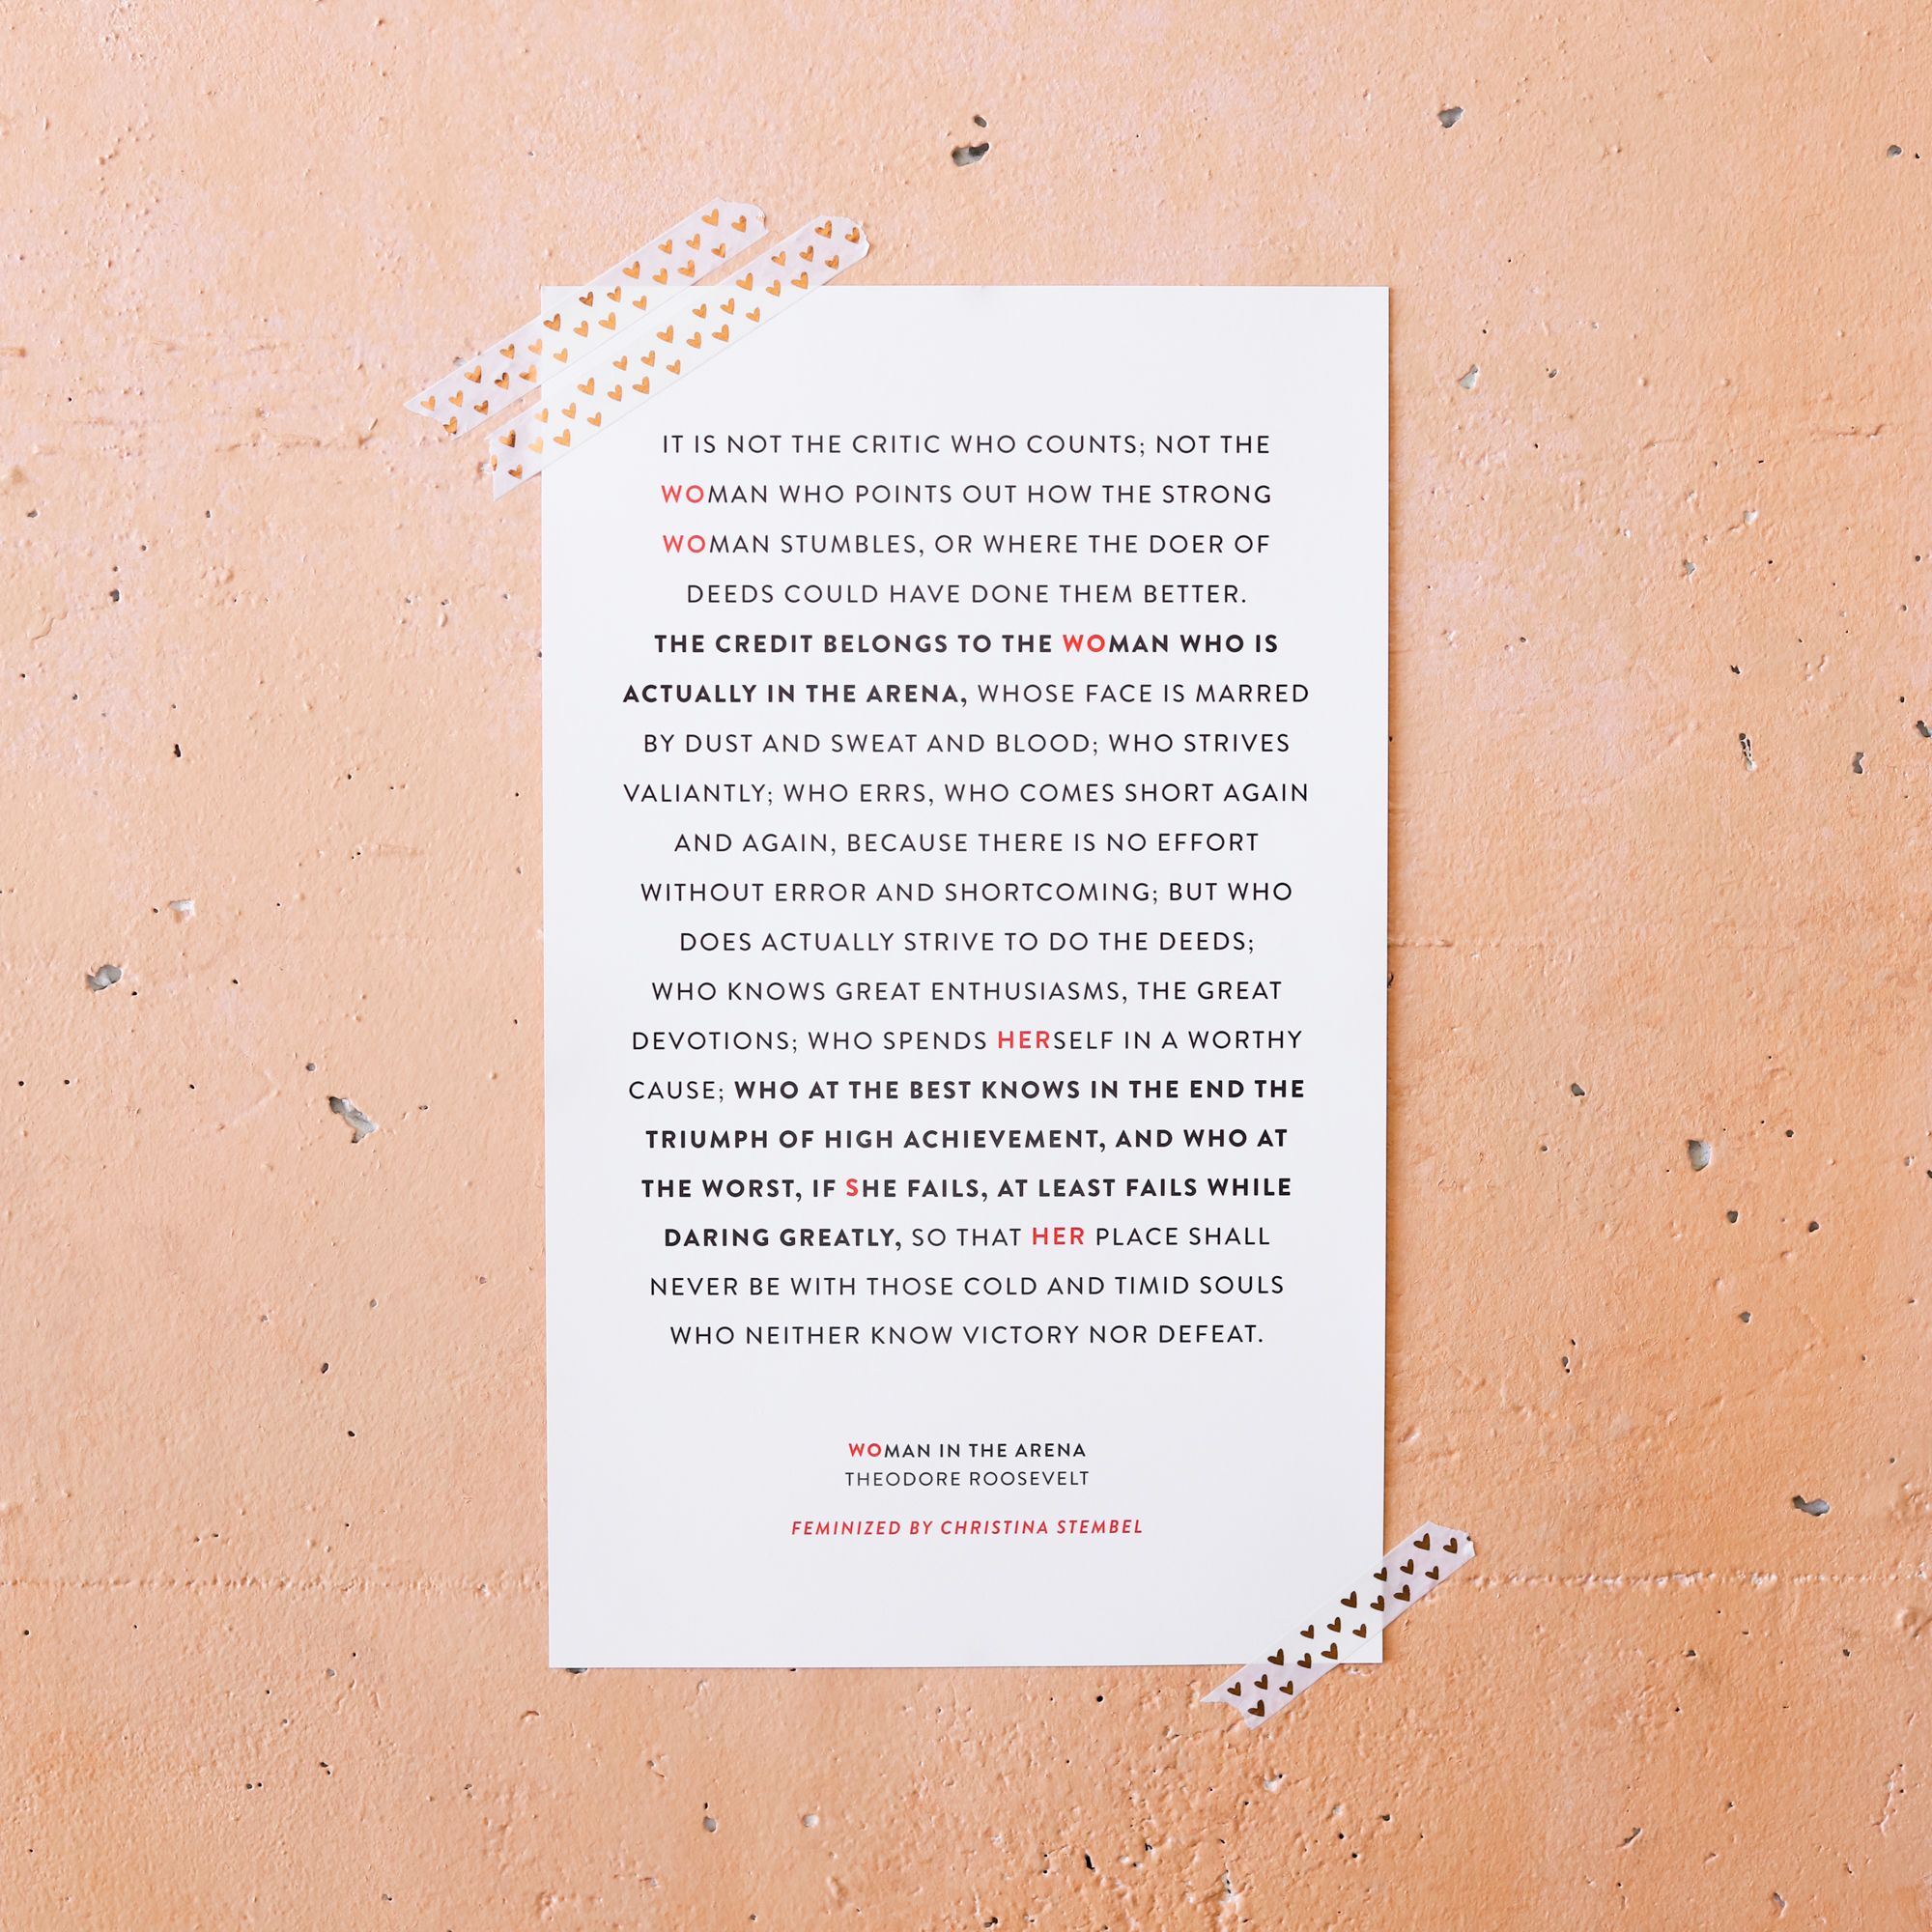 IT IS NOT THE CRITIC WHO COUNTS; NOT THE
WOMAN WHO POINTS OUT HOW THE STRONG
WOMAN STUMBLES, OR WHERE THE DOER OF
DEEDS COULD HAVE DONE THEM BETTER.
THE CREDIT BELONGS TO THE WOMAN WHO IS
ACTUALLY IN THE ARENA, WHOSE FACE IS MARRED
BY DUST AND SWEAT AND BLOOD; WHO STRIVES
VALIANTLY; WHO ERRS, WHO COMES SHORT AGAIN
AND AGAIN, BECAUSE THERE IS NO EFFORT
WITHOUT ERROR AND SHORTCOMING; BUT WHO
DOES ACTUALLY STRIVE TO DO THE DEEDS;
WHO KNOWS GREAT ENTHUSIASMS, THE GREAT
DEVOTIONS; WHO SPENDS HERSELF IN A WORTHY
CAUSE; WHO AT THE BEST KNOWS IN THE END THE
TRIUMPH OF HIGH ACHIEVEMENT, AND WHO AT
THE WORST, IF SHE FAILS, AT LEAST FAILS WHILE
DARING GREATLY, SO THAT HER PLACE SHALL
NEVER BE WITH THOSE COLD AND TIMID SOULS
WHO NEITHER KNOW VICTORY NOR DEFEAT.
WOMAN IN THE ARENA
THEODORE ROOSEVELT
FEMINIZED BY CHRISTINA STEMBEL